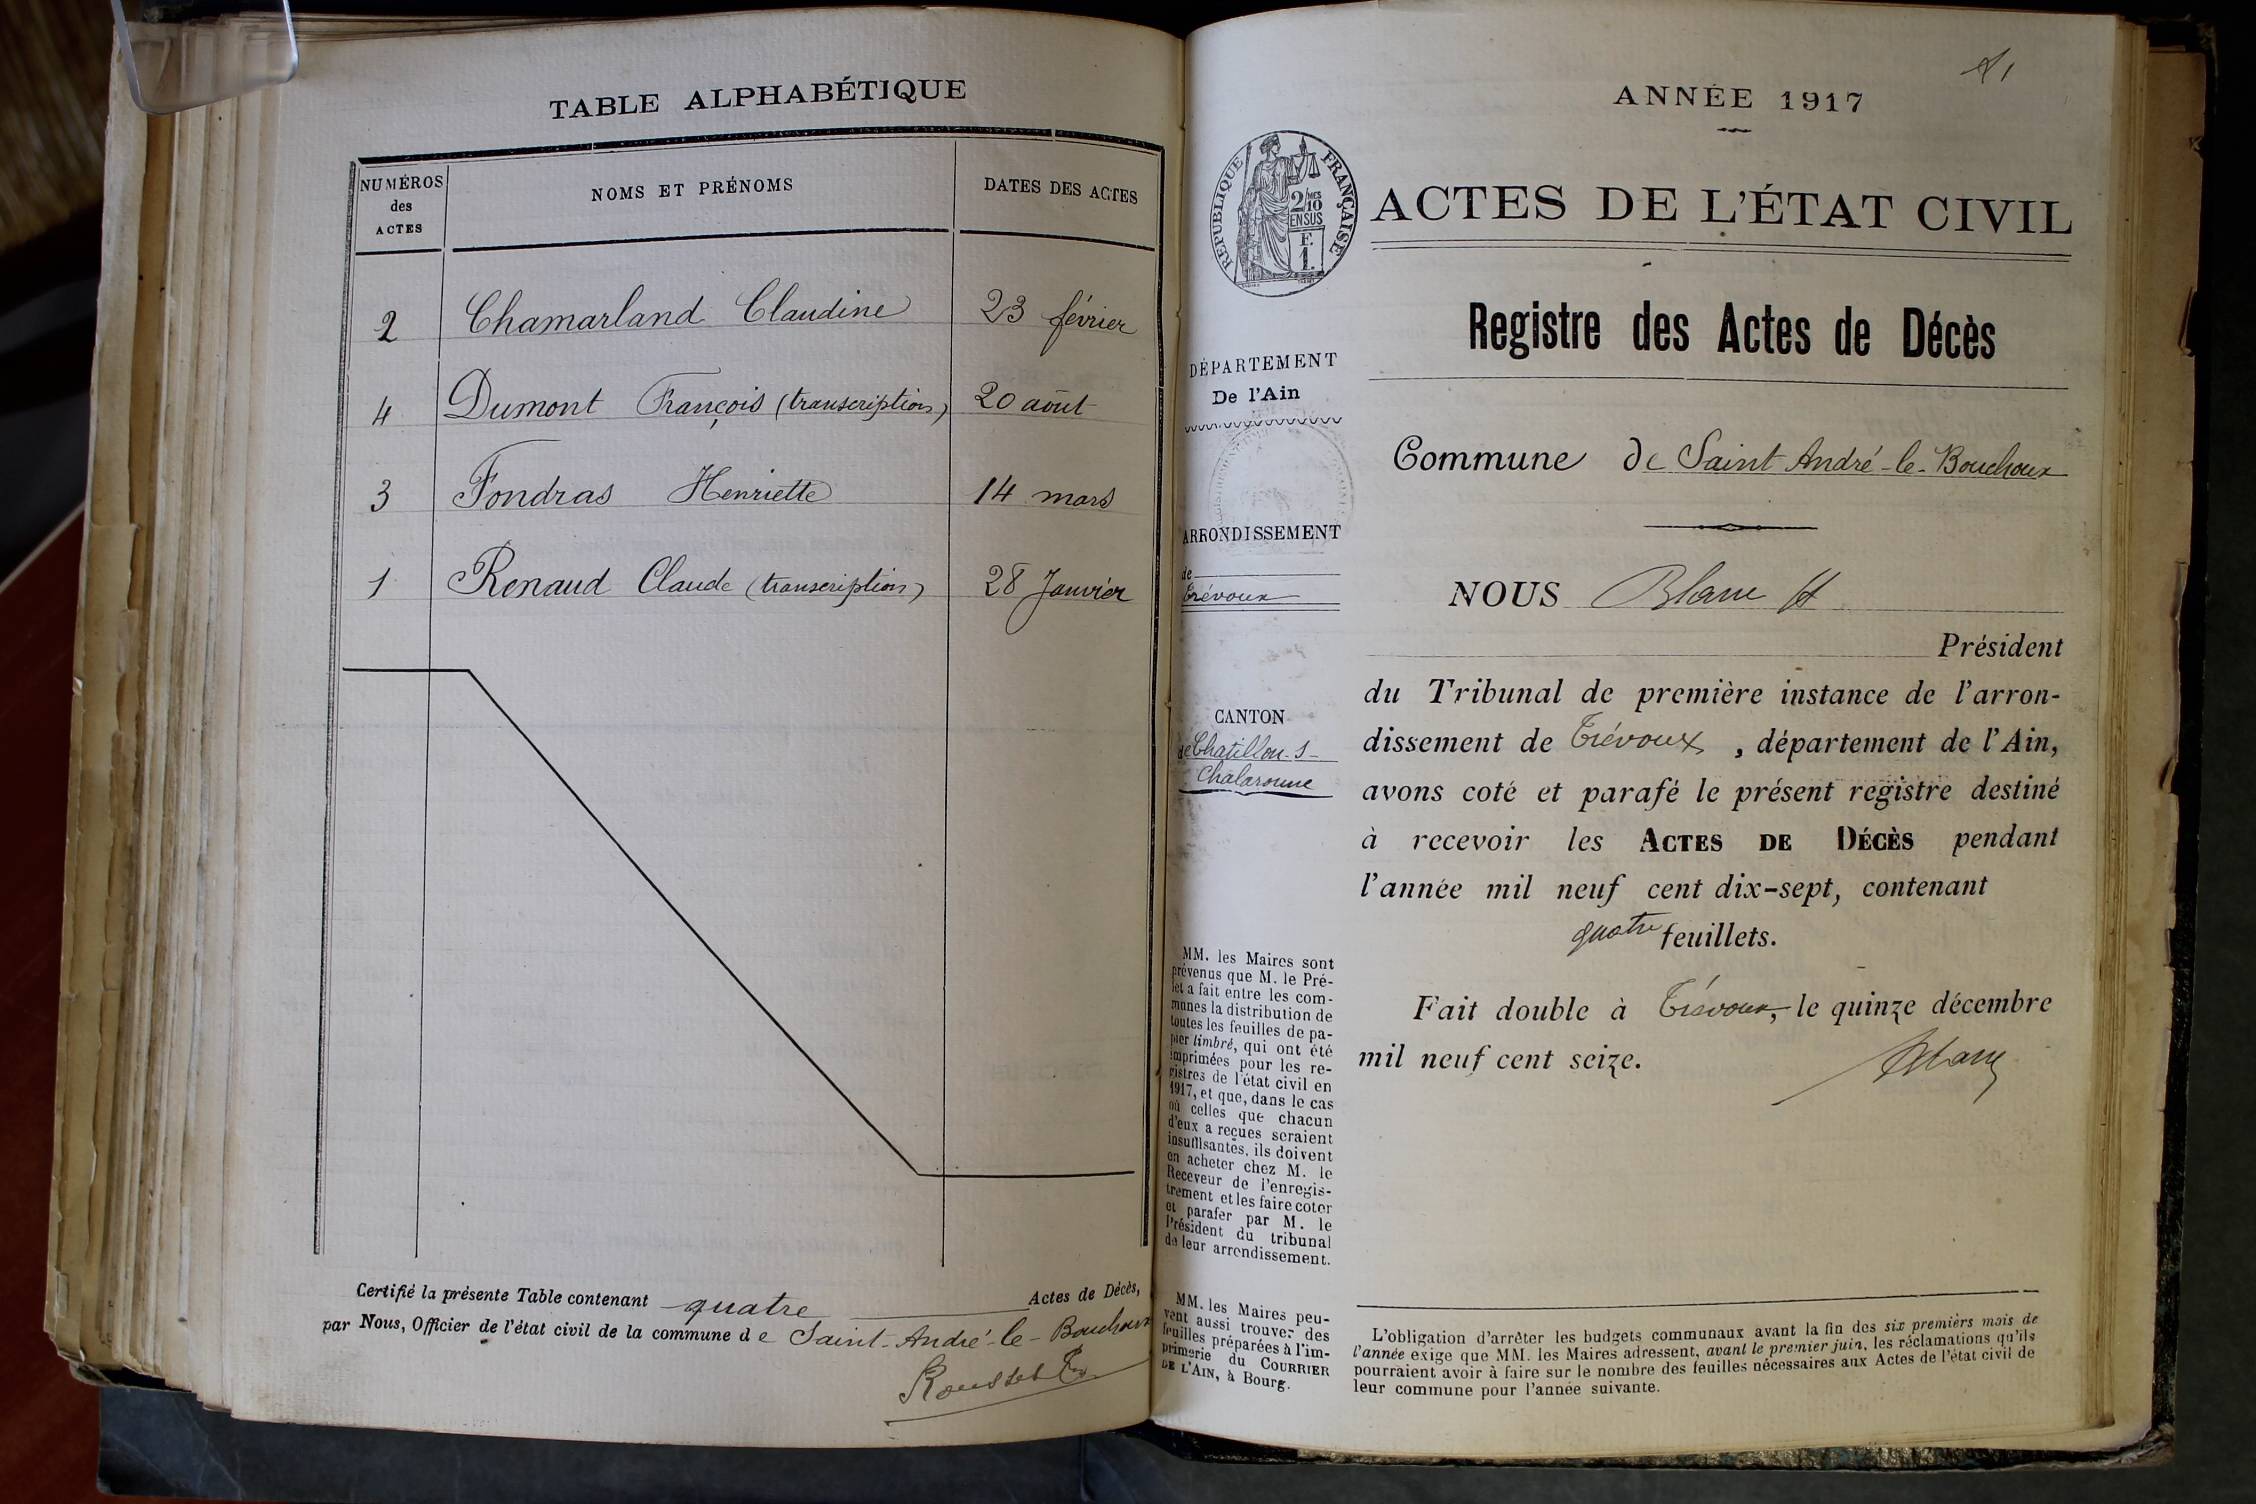 TABLE ALPHABÉTIQUE
NUMÉROS des ACTES NOMS ET PRÉNOMS DATES DES ACTES
2 Chamarland Claudine 23 février
4 Dumont François (transcription) 20 août
3 Fondras Henriette 14 mars
1 Renaud Claude (transcription) 28 Janvier
Certifié la présente Table contenant quatre Actes de Décès,
par Nous, Officier de l'état civil de la commune de Saint-André-le-Bouchoux
Rousset
ANNÉE 1917
RÉPUBLIQUE FRANÇAISE
2/10 MES
EN SUS
F.
1.
ACTES DE L'ÉTAT CIVIL
Registre des Actes de Décès
DÉPARTEMENT
De l'Ain
ARRONDISSEMENT
de
Trévoux
CANTON
de Chatillon-s-
Chalaronne
MM. les Maires sont
prévenus que M. le Pré-
fet a fait entre les com-
munes la distribution de
toutes les feuilles de pa-
pier timbré, qui ont été
imprimées pour les re-
gistres de l'état civil en
1917, et que, dans le cas
où celles que chacun
d'eux a reçues seraient
insuffisantes, ils doivent
en acheter chez M. le
Receveur de l'enregis-
trement et les faire coter
et parafer par M. le
Président du tribunal
de leur arrondissement.
MM. les Maires peu-
vent aussi trouver des
feuilles préparées à l'im-
primerie du COURRIER
DE L'AIN, à Bourg.
Commune de Saint André-le-Bouchoux
NOUS Blanc H
Président
du Tribunal de première instance de l'arron-
dissement de Trévoux, département de l'Ain,
avons coté et parafé le présent registre destiné
à recevoir les ACTES DE DÉCÈS pendant
l'année mil neuf cent dix-sept, contenant
quatre feuillets.
Fait double à Trévoux, le quinze décembre
mil neuf cent seize.
L'obligation d'arrêter les budgets communaux avant la fin des six premiers mois de
l'année exige que MM. les Maires adressent, avant le premier juin, les réclamations qu'ils
pourraient avoir à faire sur le nombre des feuilles nécessaires aux Actes de l'état civil de
leur commune pour l'année suivante.